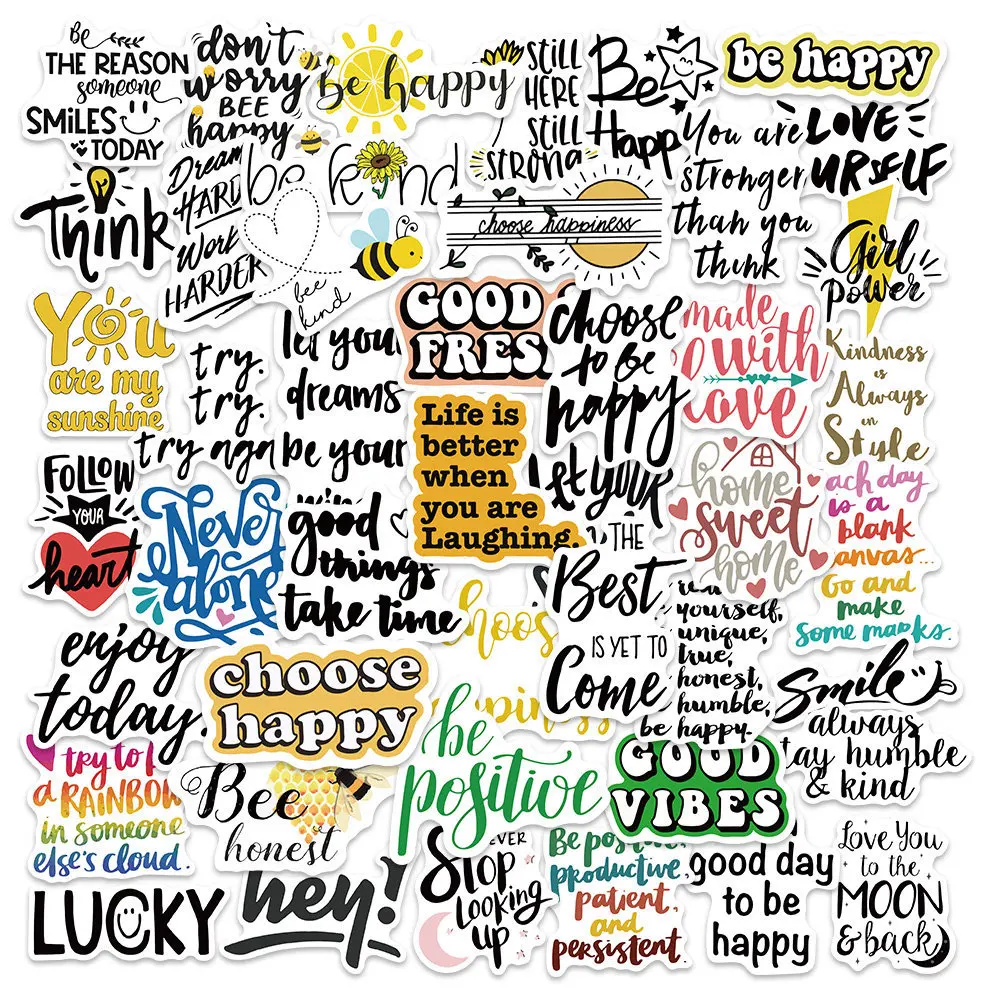 Be
THE REASON
someone
SMiLES
TODAY
don't
worry
BEE
happy
be happy
STiLL
HERE
STiLL
STRONG
Be
Happ
be happy
Think
Dream
HARD
Work
HARDER
be kind
bee
kind
choose happiness
You are
stronger
than you
think
LOVE
URSELF
Girl
Power
You
are my
sunshine
try.
try.
try again
let your
dreams
be your
GOOD
FRES
choose
to be
happy
made
with
love
Kindness
is
Always
in
Style
FOLLOW
YOUR
heart
Never
alone
good
things
take time
Life is
better
when
you are
Laughing.
let your
THE
Best
IS YET TO
Come
home
sweet
home
ach day
is a
blank
anvas...
Go and
make
some marks.
enjoy
today.
choose
happy
hoos
ppines
be
positive
yourself,
unique,
true,
honest,
humble,
be happy.
Smile
always
tay humble
& kind
try to b
a RAINBOW
in someone
else's cloud.
Bee
honest
GOOD
VIBES
LUCKY
hey!
EVER
Stop
Looking
up
Be positive
productive,
patient,
and
persistent.
good day
to be
happy
Love You
to the
MOON
& back